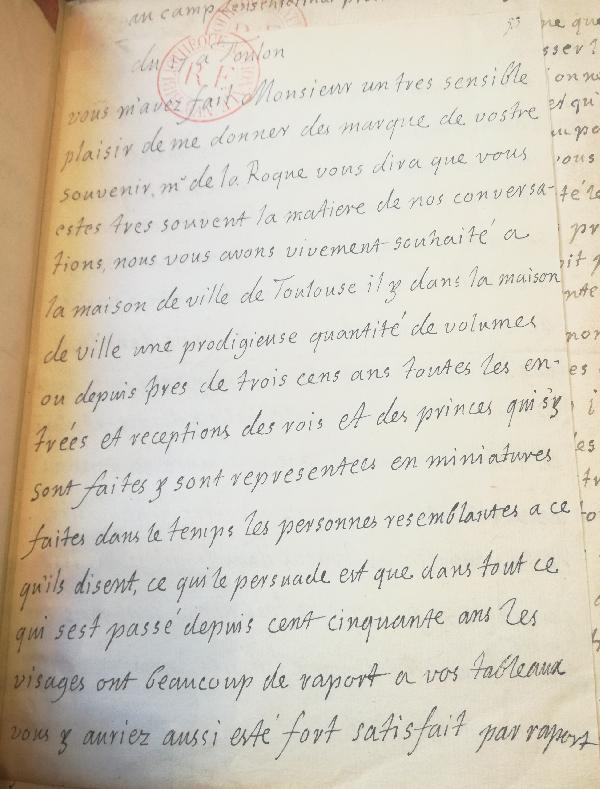 au camp
53
du 17 a Toulon
vous m'avez fait Monsieur un tres sensible
plaisir de me donner des marque de vostre
souvenir, mr de la Roque vous dira que vous
estes tres souvent la matiere de nos conversa-
tions, nous vous avons vivement souhaité a
la maison de ville de Toulouse il y dans la maison
de ville une prodigieuse quantité de volumes
ou depuis pres de trois cens ans toutes les en-
trées et receptions des rois et des princes qui s'y
sont faites y sont representees en miniatures
faites dans le temps les personnes resemblantes a ce
qu'ils disent, ce qui le persuade est que dans tout ce
qui sest passé depuis cent cinquante ans les
visages ont beaucoup de raport a vos tableaux
vous y auriez aussi esté fort satisfait par raport
R.F.